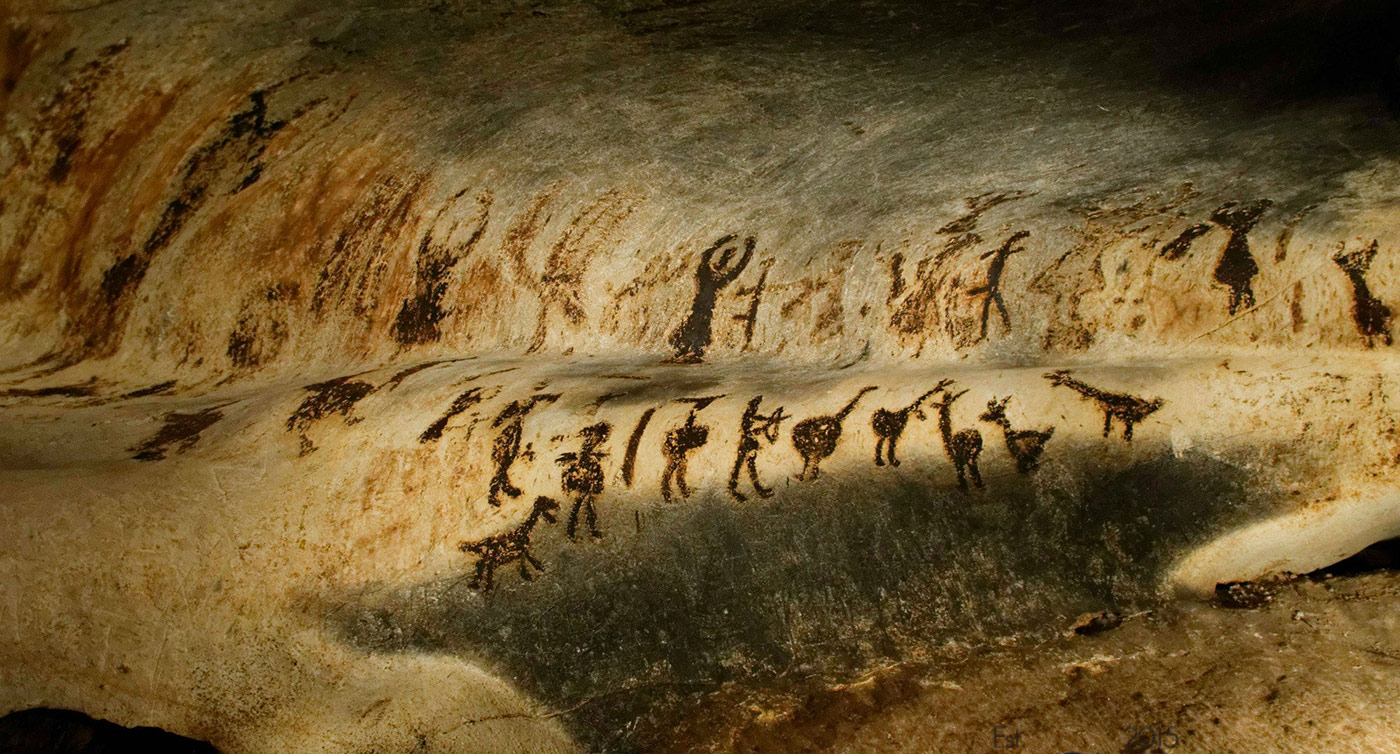 Est 2015